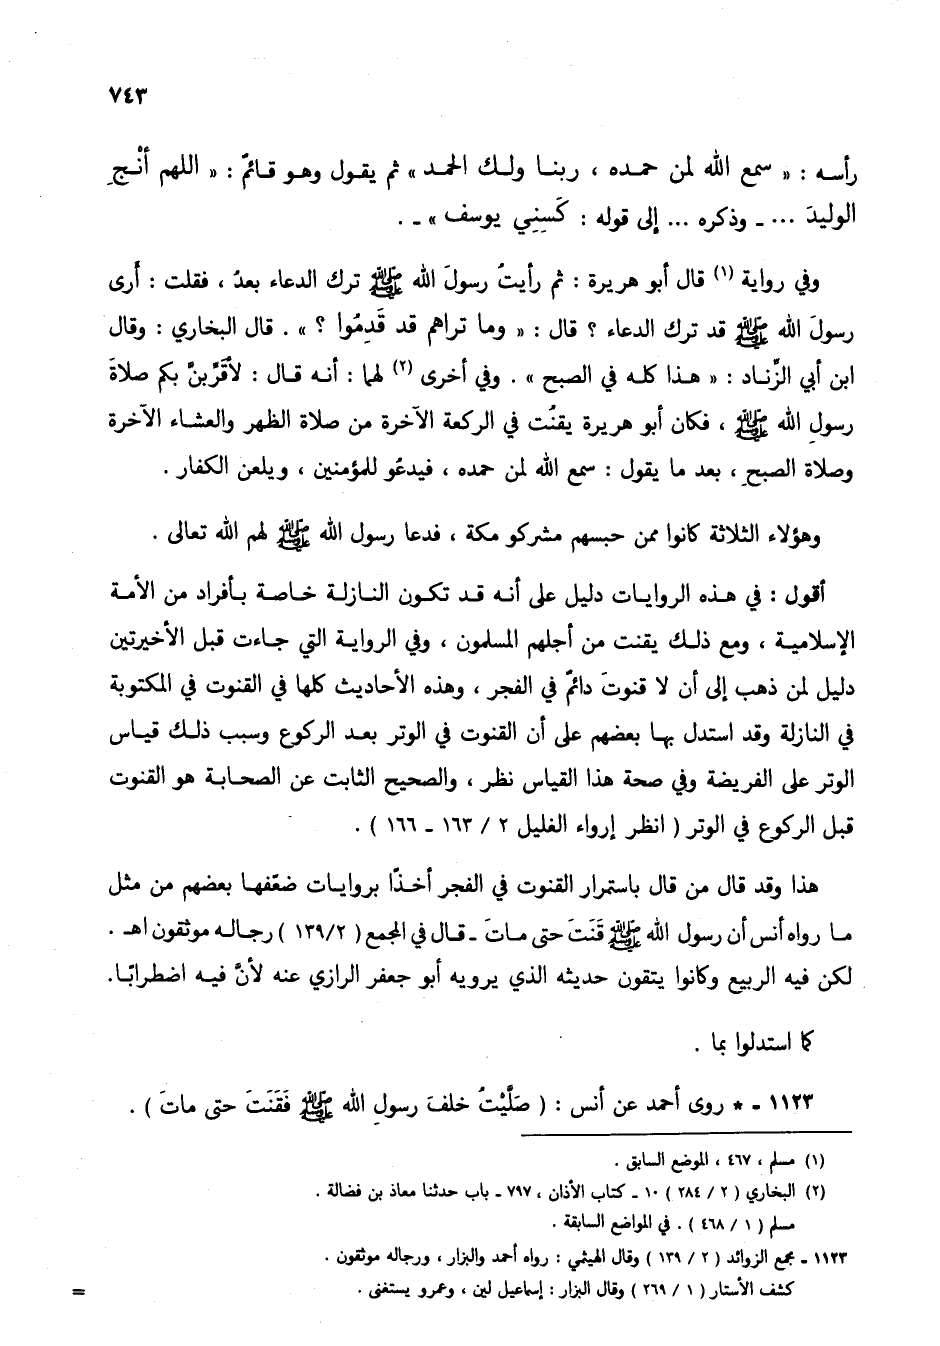 ٧٤٣
رأسه : « سمع الله لمن حمده ، ربنا ولك الحمد » ثم يقول وهو قائمٌ : « اللهم أنْجِ
الوليدَ ... ـ وذكره ... إلى قوله : كَسِنِي يوسف » ـ .
وفي رواية (١) قال أبو هريرة : ثم رأيتُ رسولَ الله ﷺ ترك الدعاء بعدُ ، فقلت : أُرى
رسولَ الله ﷺ قد ترك الدعاء ؟ قال : « وما تراهم قد قَدِمُوا ؟ » . قال البخاري : وقال
ابن أبي الزِّناد : « هذا كله في الصبح » . وفي أخرى (٢) لهما : أنه قال : لأقَرِّبنَّ بكم صلاةَ
رسولِ الله ﷺ ، فكان أبو هريرة يقنُت في الركعة الآخرة من صلاة الظهر والعشاء الآخرة
وصلاة الصبحِ ، بعد ما يقول : سمع الله لمن حمده ، فيدعُو للمؤمنين ، ويلعن الكفار .
وهؤلاء الثلاثة كانوا ممن حبسهم مشركو مكة ، فدعا رسول الله ﷺ لهم الله تعالى .
أقول : في هذه الروايات دليل على أنه قد تكون النازلة خاصة بأفراد من الأمة
الإسلامية ، ومع ذلك يقنت من أجلهم المسلمون ، وفي الرواية التي جاءت قبل الأخيرتين
دليل لمن ذهب إلى أن لا قنوتَ دائمٌ في الفجر ، وهذه الأحاديث كلها في القنوت في المكتوبة
في النازلة وقد استدل بها بعضهم على أن القنوت في الوتر بعد الركوع وسبب ذلك قياس
الوتر على الفريضة وفي صحة هذا القياس نظر ، والصحيح الثابت عن الصحابة هو القنوت
قبل الركوع في الوتر ( انظر إرواء الغليل ٢ / ١٦٣ ـ ١٦٦ ) .
هذا وقد قال من قال باستمرار القنوت في الفجر أخذًا بروايات ضعّفها بعضهم من مثل
ما رواه أنس أن رسول الله ﷺ قَنَتَ حتى ماتَ ـ قال في المجمع ( ١٣٩/٢ ) رجاله موثقون اهـ .
لكن فيه الربيع وكانوا يتقون حديثه الذي يرويه أبو جعفر الرازي عنه لأنَّ فيه اضطرابًا.
كما استدلوا بما .
١١٢٣ ـ * روى أحمد عن أنس : ( صَلَّيْتُ خلفَ رسولِ الله ﷺ فَقَنَتَ حتى ماتَ ) .
(١) مسلم ، ٤٦٧ ، الموضع السابق .
(٢) البخاري ( ٢ / ٢٨٤ ) ١٠ ـ كتاب الأذان ، ٧٩٧ ـ باب حدثنا معاذ بن فضالة .
مسلم ( ١ / ٤٦٨ ) . في المواضع السابقة .
١١٢٣ ـ مجمع الزوائد ( ٢ / ١٣٩ ) وقال الهيثمي : رواه أحمد والبزار ، ورجاله موثقون .
كشف الأستار ( ١ / ٢٦٩ ) وقال البزار : إسماعيل لين ، وعمرو يستغنى .
=